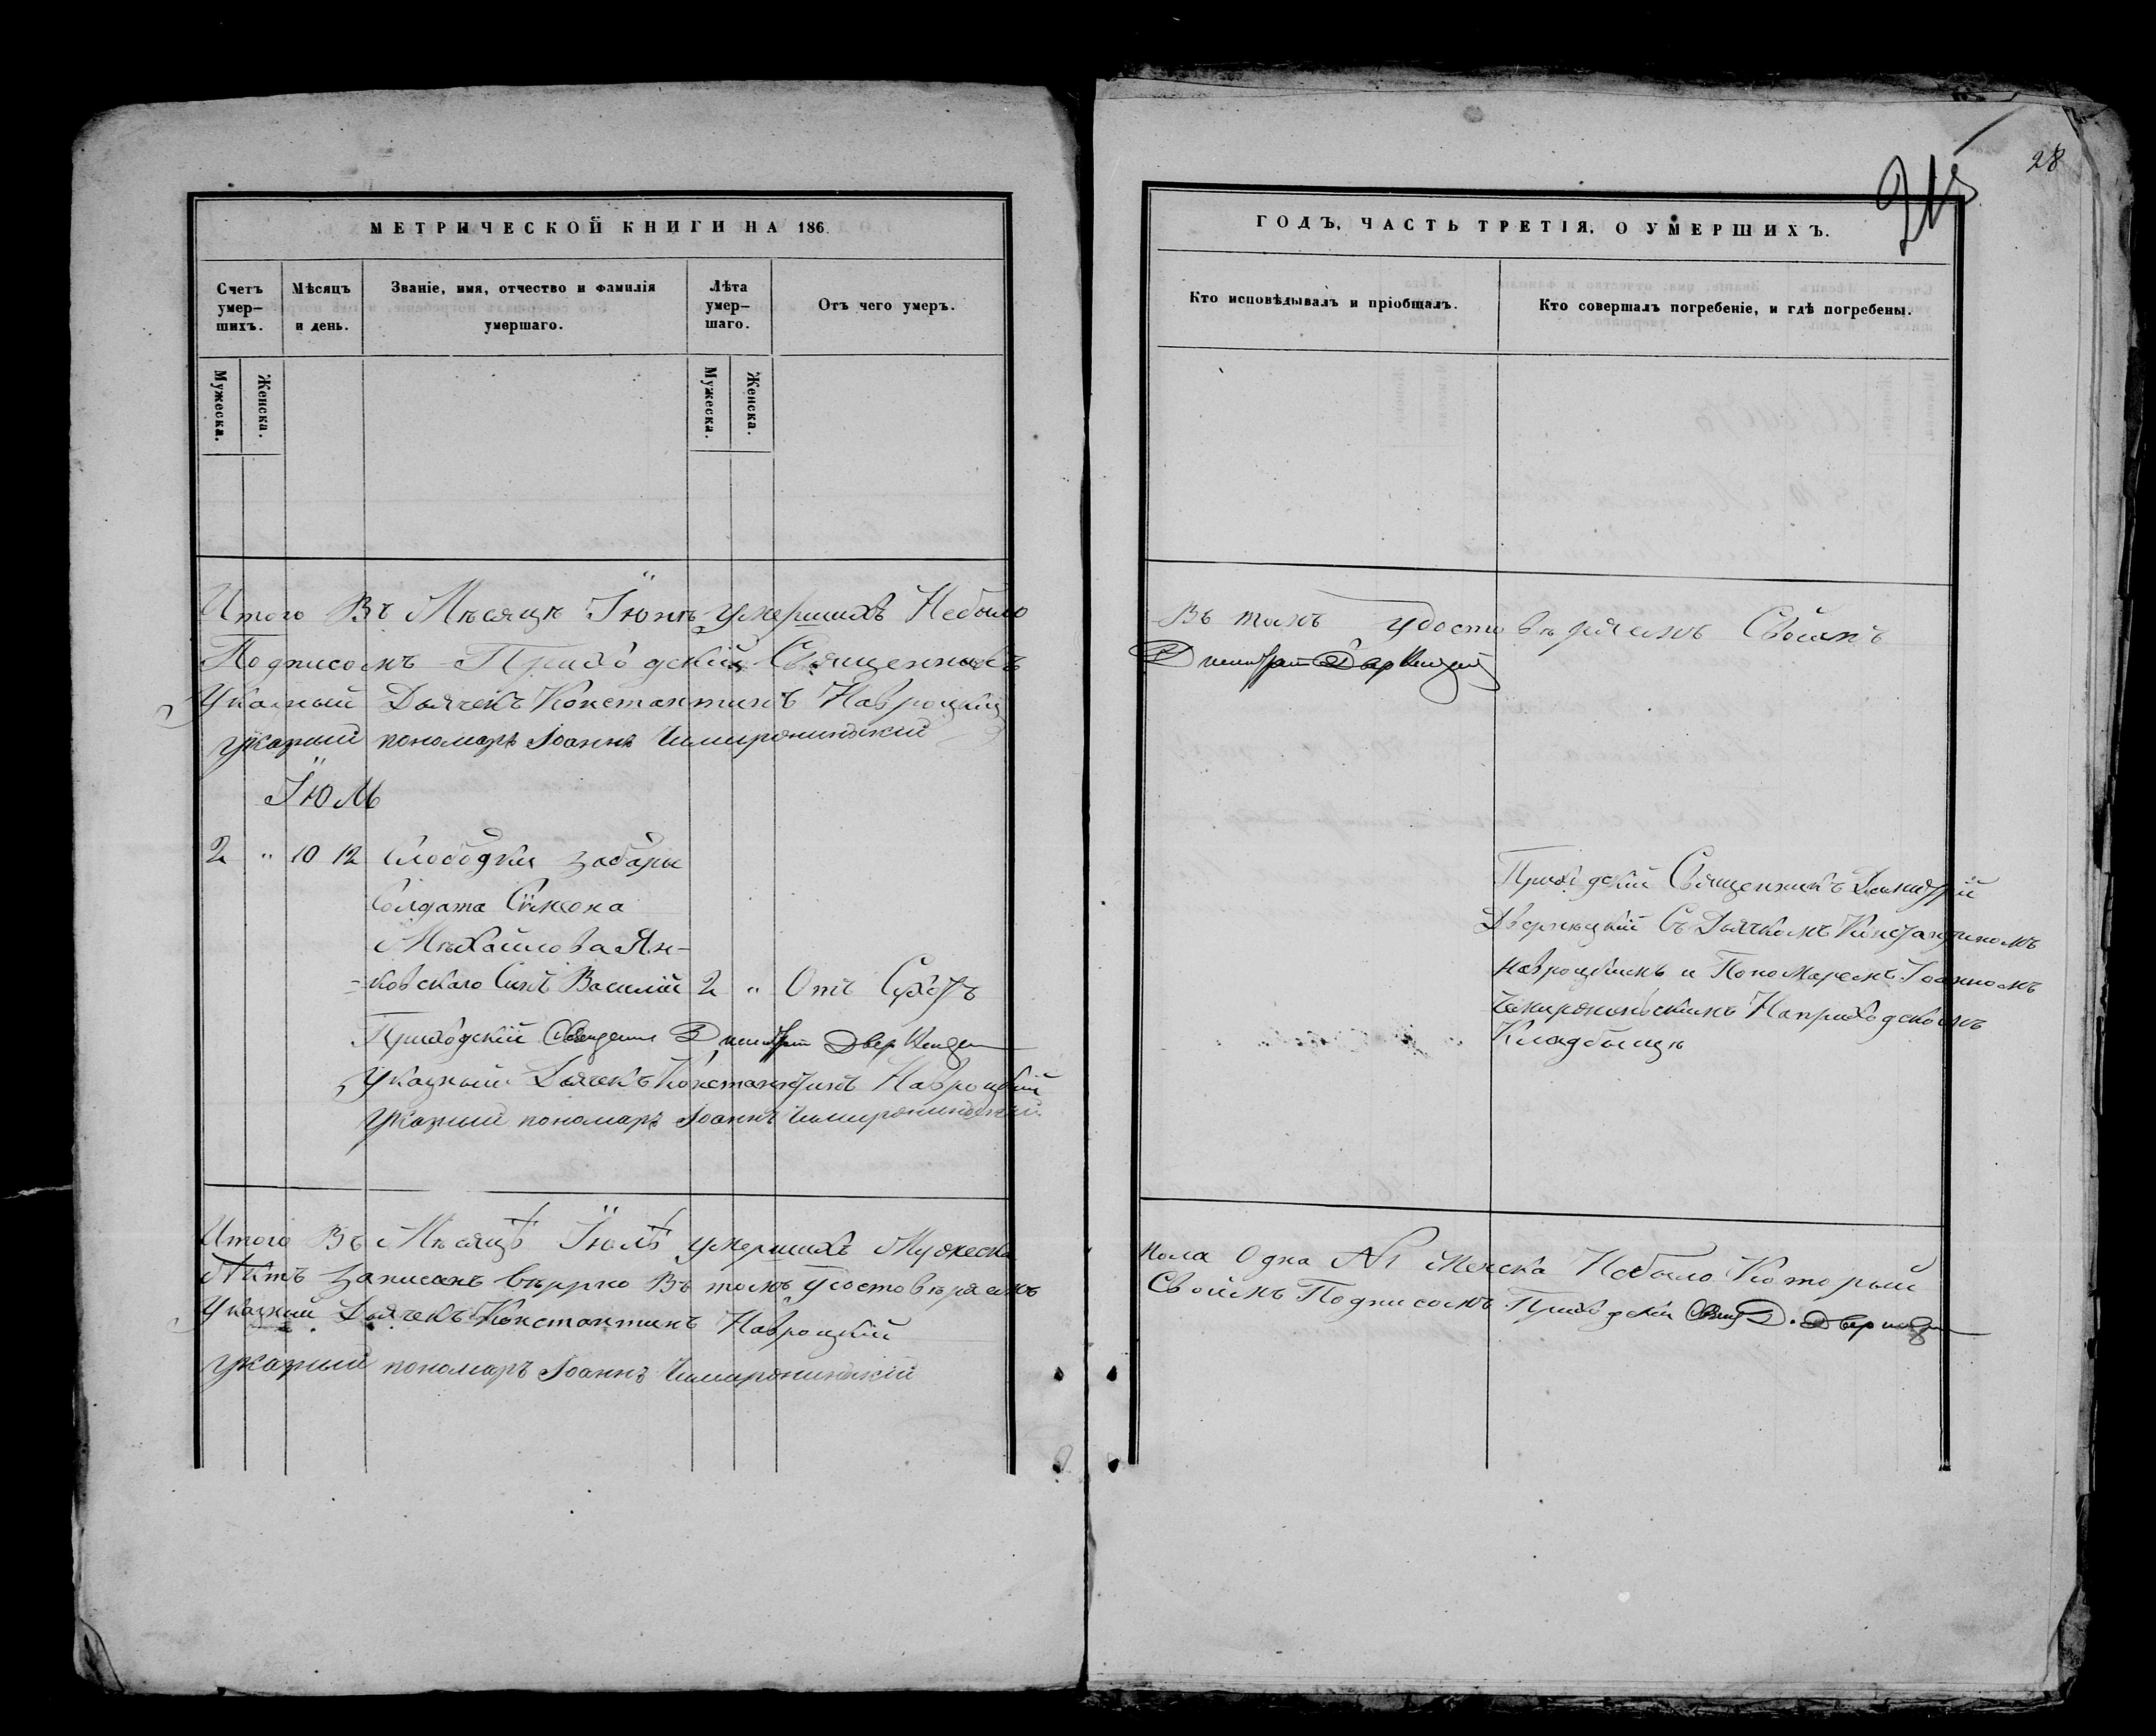 МЕТРИЧЕСКОЙ КНИГИ НА 186
Счетъ умер-шихъ.
Мѣсяцъ и день.
Званіе, имя, отчество и фамилія умершаго.
Лѣта умер-шаго.
Отъ чего умеръ.
Мужеска.
Женска.
Мужеска.
Женска.
Итого Въ Мѣсяцѣ Іюнѣ умершихъ Небыло
Подписомъ Приходскій Священникъ
Указный Дьячекъ Константинъ Навроцкій
Указный пономаръ Іоаннъ
Іюль
2 " 10 12 Слободки Забары
Солдата Симеона
Михайлова Ян-
-ковскаго Сынъ Василій 2 " Отъ Сухотъ
Приходскій Священникъ Димитрій
Указный Дьячекъ Константинъ Навроцкій
Указный пономаръ Іоаннъ
Итого Въ Мѣсяцѣ Іюлѣ умершихъ Мужеска
записанъ вѣрно Въ томъ удостовѣряемъ
Указный Дьячекъ Константинъ Навроцкій
Указный пономаръ Іоаннъ
28
ГОДЪ, ЧАСТЬ ТРЕТІЯ, О УМЕРШИХЪ.
Кто исповѣдывалъ и пріобщалъ.
Кто совершалъ погребеніе, и гдѣ погребены.
Въ томъ удостовѣряемъ Своимъ
Димитрій
Приходскій Священникъ Димитрій
Съ Дьячкомъ Константиномъ
Навроцкимъ и Пономаремъ Іоанномъ
Наприходскомъ
Кладбыщѣ
пола Одна №1 Женска Небыло Который
Своимъ Подписомъ Приходскій Свящ Д.